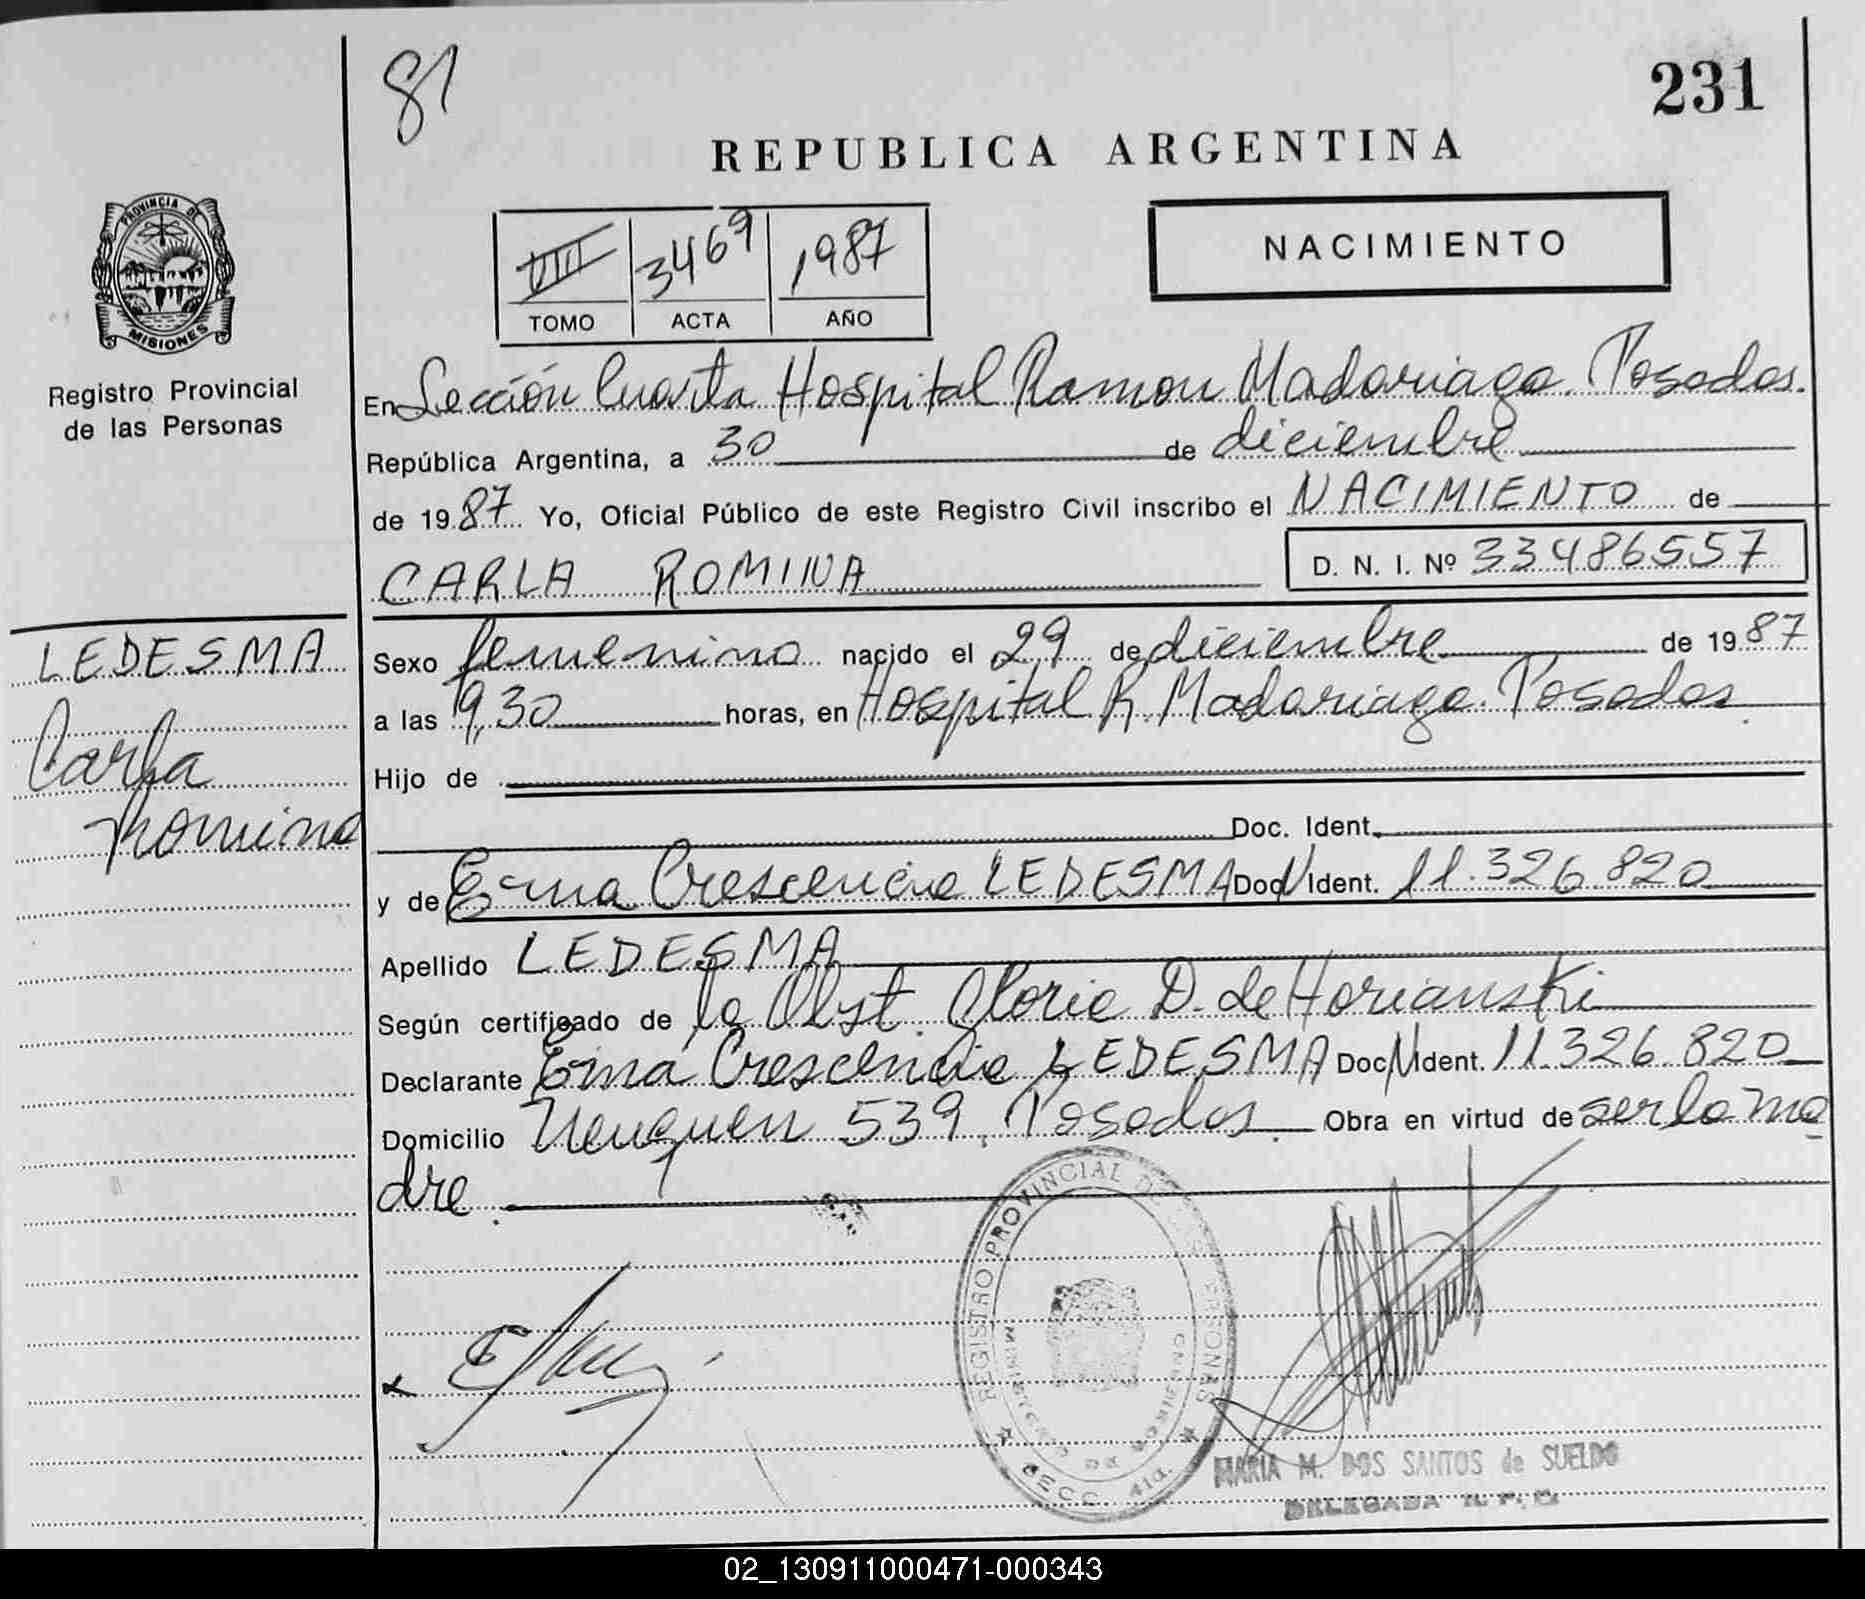 81
231
REPUBLICA ARGENTINA
PROVINCIA DE
MISIONES
Registro Provincial
de las Personas
VIII 3469 1987
TOMO ACTA AÑO
NACIMIENTO
En Sección Cuarta Hospital Ramon Madariaga. Posadas.
República Argentina, a 30 de diciembre
de 1987 Yo, Oficial Público de este Registro Civil inscribo el NACIMIENTO de
CARLA ROMINA D. N. I. Nº 33486557
LEDESMA
Carla
Romina
Sexo femenino nacido el 29 de diciembre de 1987
a las 9,30 horas, en Hospital R. Madariaga. Posadas
Hijo de
Doc. Ident.
y de Erna Crescencia LEDESMA Doc N Ident. 11.326.820
Apellido LEDESMA
Según certificado de la Obst. Gloria D. de Horianski
Declarante Erna Crescencia LEDESMA Doc N Ident. 11.326.820
Domicilio Neuquen 539. Posadas. Obra en virtud de ser la ma
dre.
REGISTRO PROVINCIAL DE LAS PERSONAS
MINISTERIO DE GOBIERNO
SECC. 4ta.
MARIA M. DOS SANTOS de SUELDO
DELEGADA R. P. P.
02_130911000471-000343